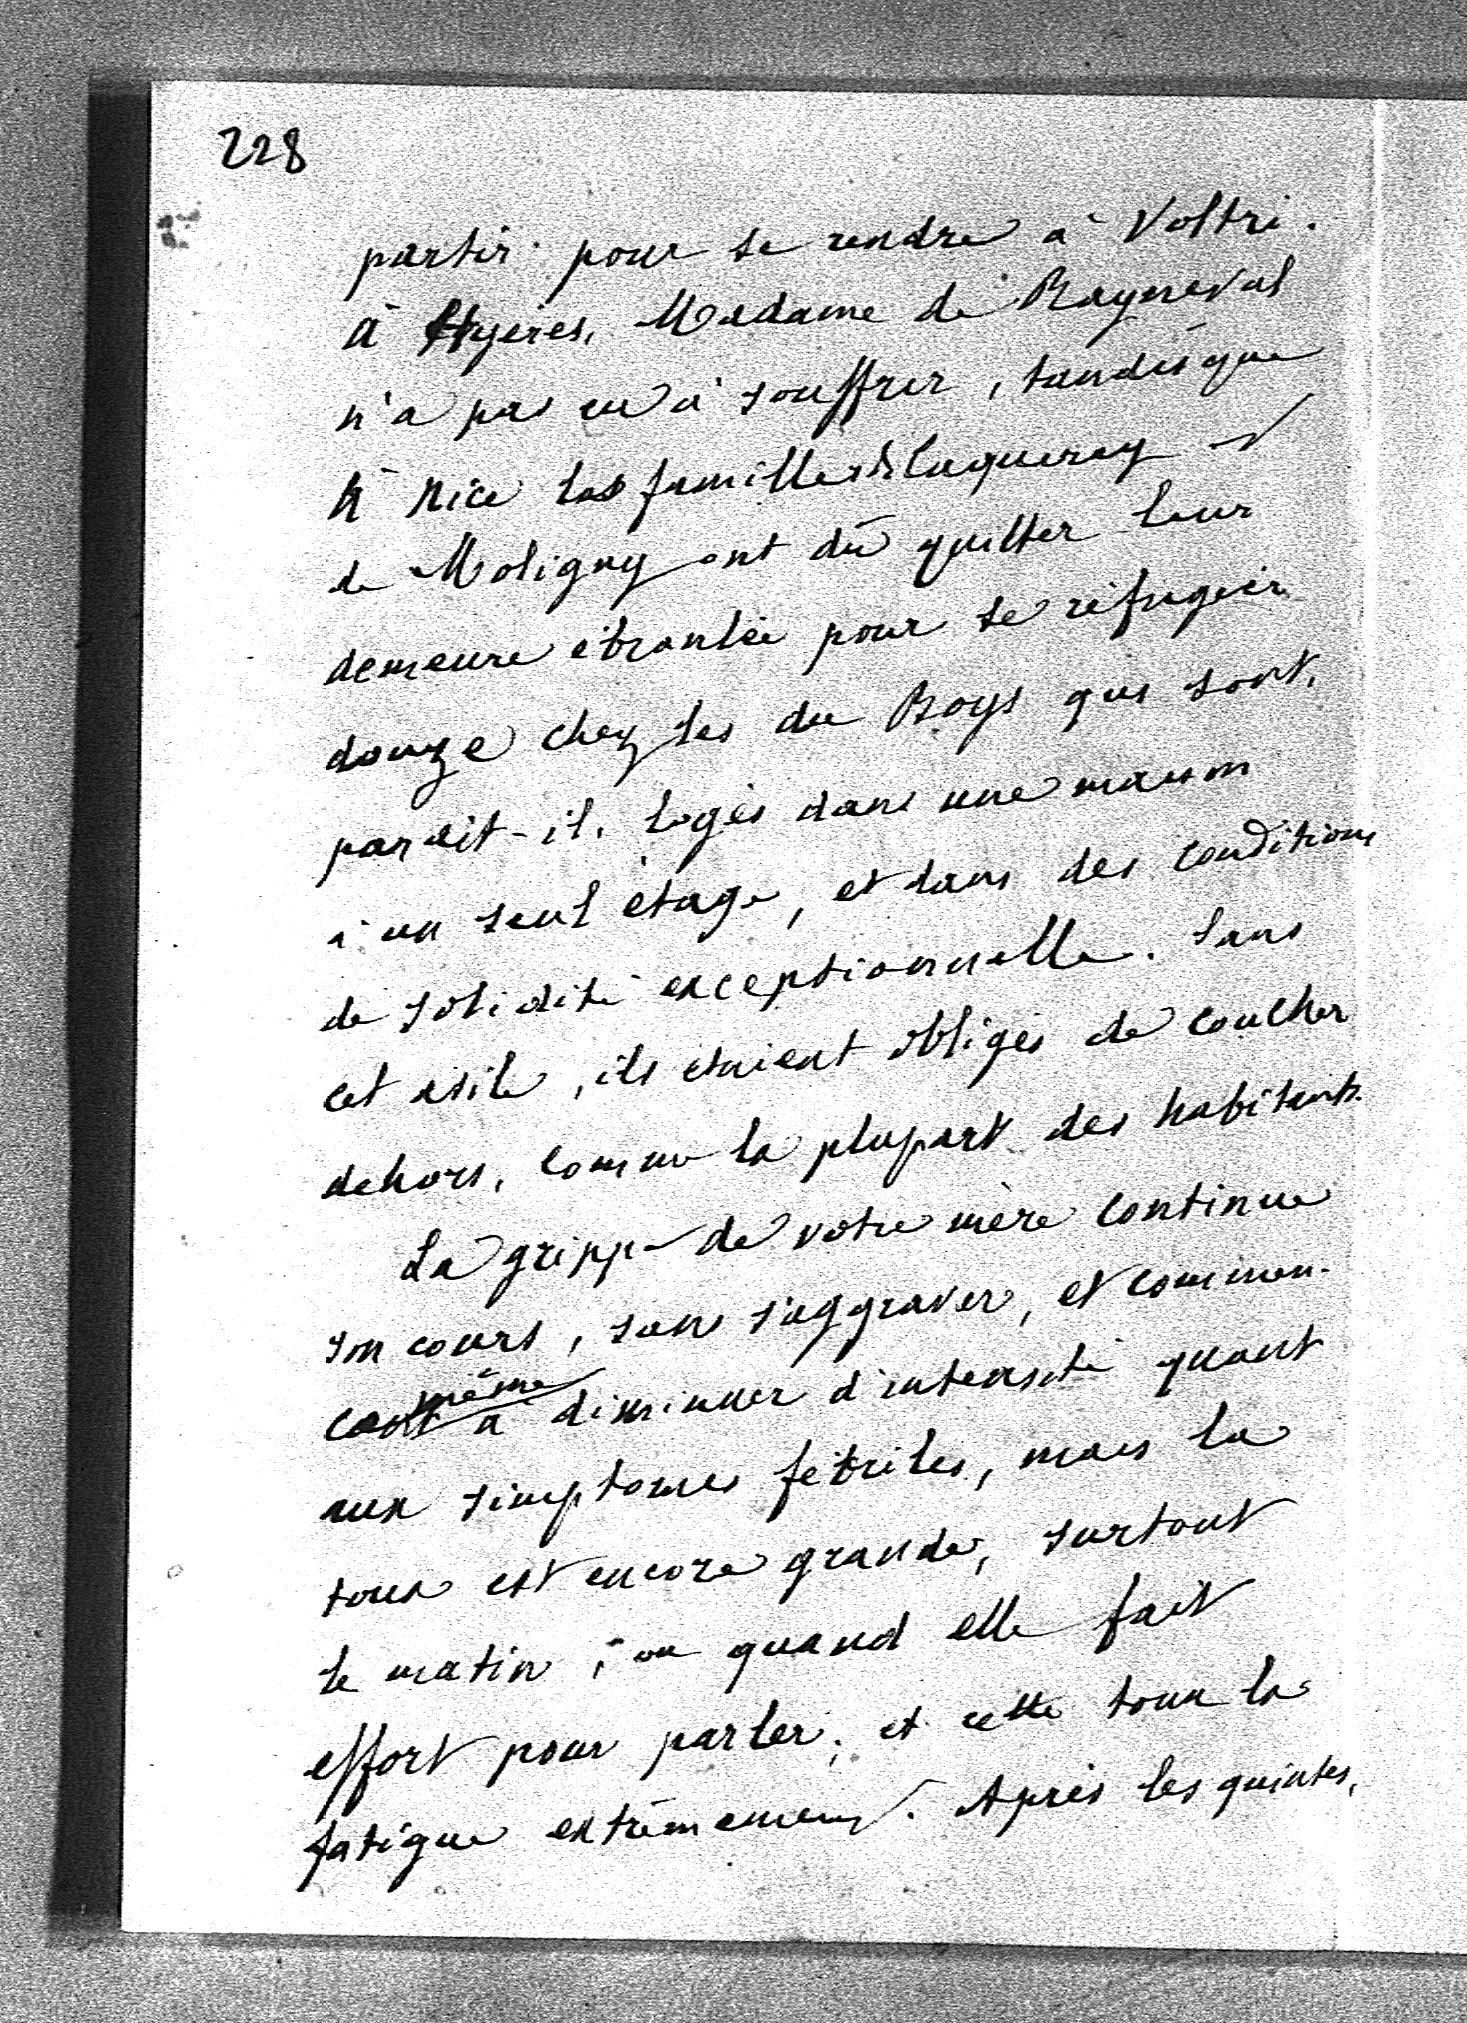 228
partir pour se rendre à Voltri.
à Hyères, Madame de Rayneval
n'a pas eu à souffrir, tandis que
à Nice les familles de Caqueray et
de Moligny ont dû quitter leur
demeure ébranlée pour se réfugier
douze chez les du Boys qui sont,
paraît-il, logés dans une maison
à un seul étage, et dans des conditions
de solidité exceptionnelle. Sans
cet asile, ils étaient obligés de coucher
dehors, comme la plupart des habitants.
La grippe de votre mère continue
son cours, sans s'aggraver, et commen-
même
à diminuer d'intensité quant
aux simptomes fébriles, mais la
toux est encore grande, surtout
le matin, ou quand elle fait
effort pour parler, et cette toux la
fatigue extrêmement. Après les quintes,